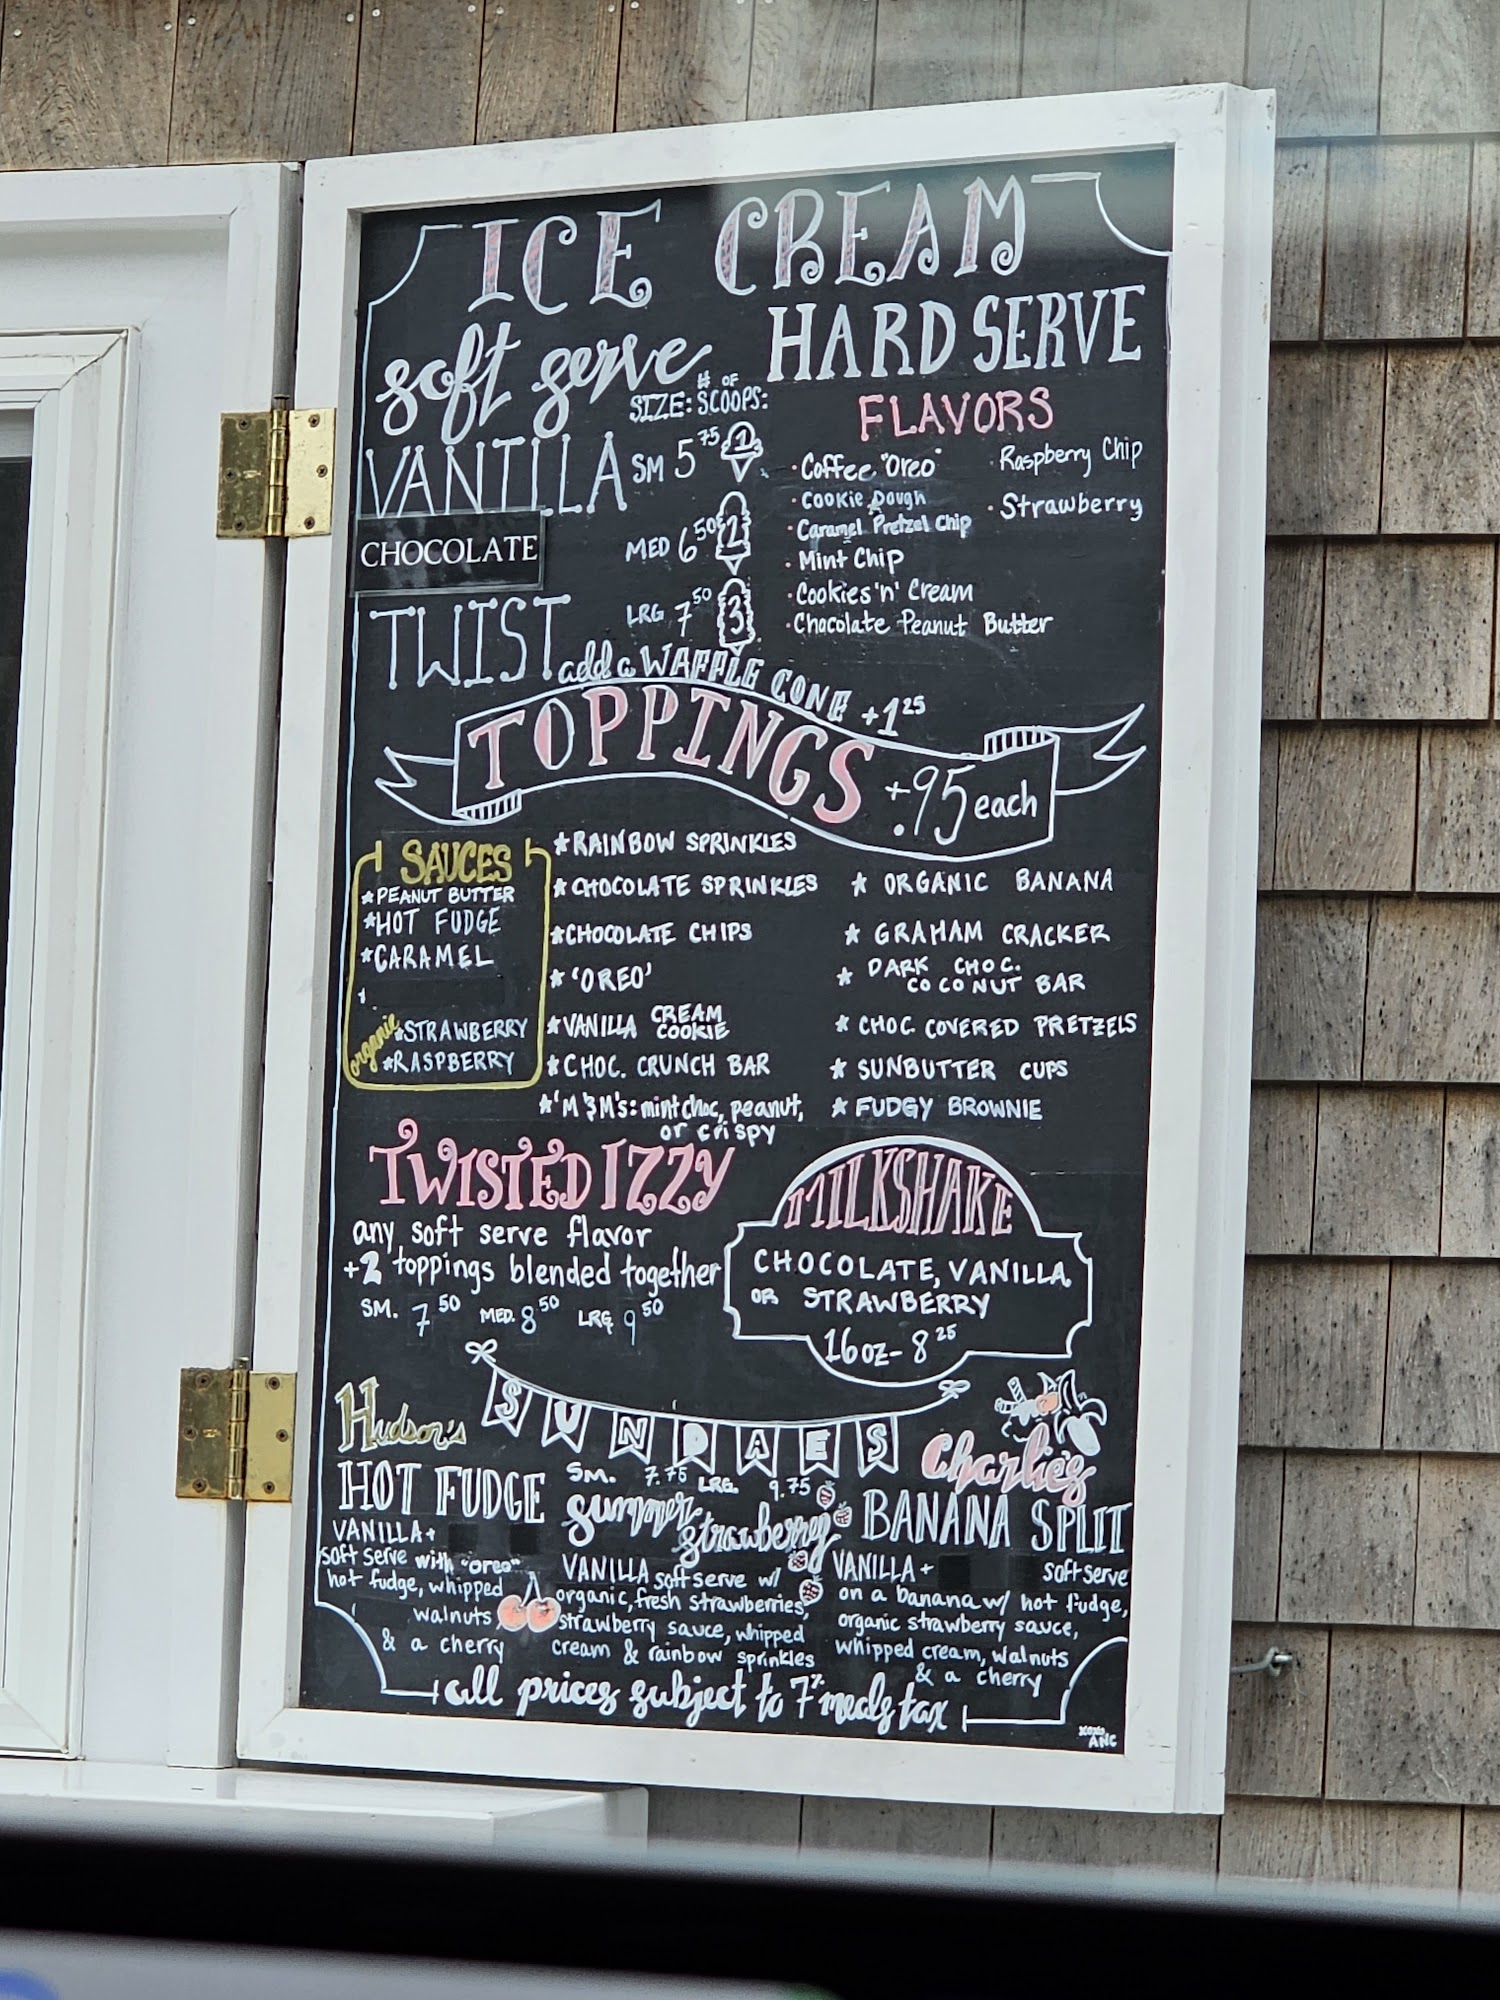 ICE CREAM
soft serve
SIZE: # OF SCOOPS:
VANILLA
CHOCOLATE
TWIST
SM 5 75 1
MED 6 50 2
LRG 7 50 3
add a WAFFLE CONE +1 25
HARD SERVE
FLAVORS
· Coffee "Oreo"
· Cookie Dough
· Caramel Pretzel Chip
· Mint Chip
· Cookies 'n' Cream
· Chocolate Peanut Butter
· Raspberry Chip
· Strawberry
TOPPINGS +.95 each
SAUCES
*PEANUT BUTTER
*HOT FUDGE
*CARAMEL
organic
*STRAWBERRY
*RASPBERRY
*RAINBOW SPRINKLES
*CHOCOLATE SPRINKLES
*CHOCOLATE CHIPS
*'OREO'
*VANILLA CREAM
COOKIE
*CHOC. CRUNCH BAR
*'M&M's: mint choc, peanut,
or crispy
* ORGANIC BANANA
* GRAHAM CRACKER
* DARK CHOC.
COCONUT BAR
* CHOC COVERED PRETZELS
* SUNBUTTER CUPS
* FUDGY BROWNIE
TWISTED IZZY
any soft serve flavor
+2 toppings blended together
SM. 7 50 MED. 8 50 LRG 9 50
MILKSHAKE
CHOCOLATE, VANILLA,
OR STRAWBERRY
16oz- 8 25
SUNDAES
SM. 7.75 LRG. 9.75
Hudson's
HOT FUDGE
VANILLA+
soft serve with "oreo"
hot fudge, whipped
walnuts
& a cherry
summer
strawberry
VANILLA soft serve w/
organic, fresh strawberries,
strawberry sauce, whipped
cream & rainbow sprinkles
Charlie's
BANANA SPLIT
VANILLA + soft serve
on a banana w/ hot fudge,
organic strawberry sauce,
whipped cream, walnuts
& a cherry
all prices subject to 7% meals tax
xoxo
ANC